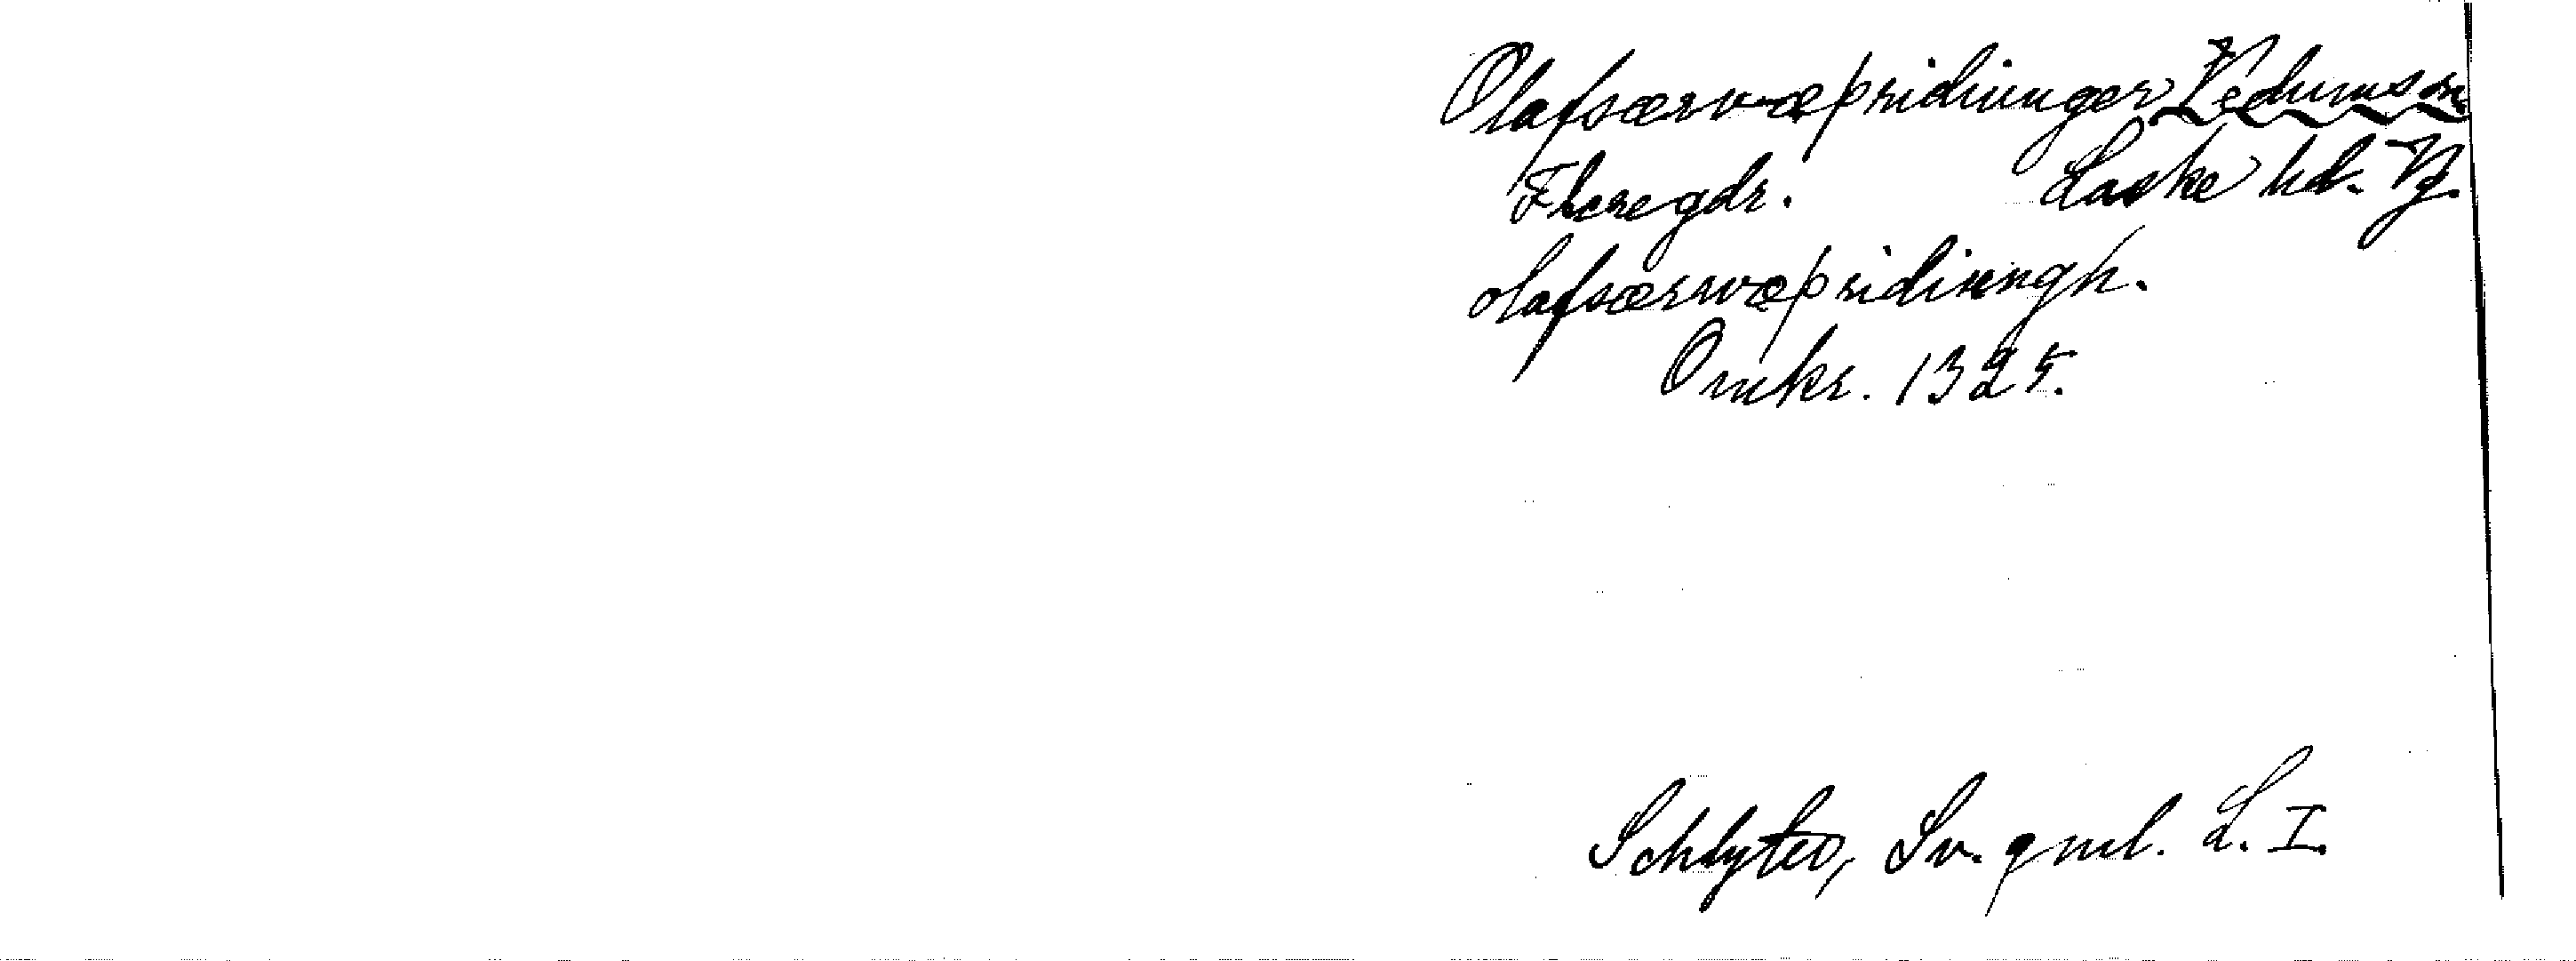 Olafsærvæþridiunger Vedums sn.
Fleregdr. Laske hd. Vg.
olafsærwæþridiungh.
Omkr. 1325.
Schlyter, Sv. gml. L. I.